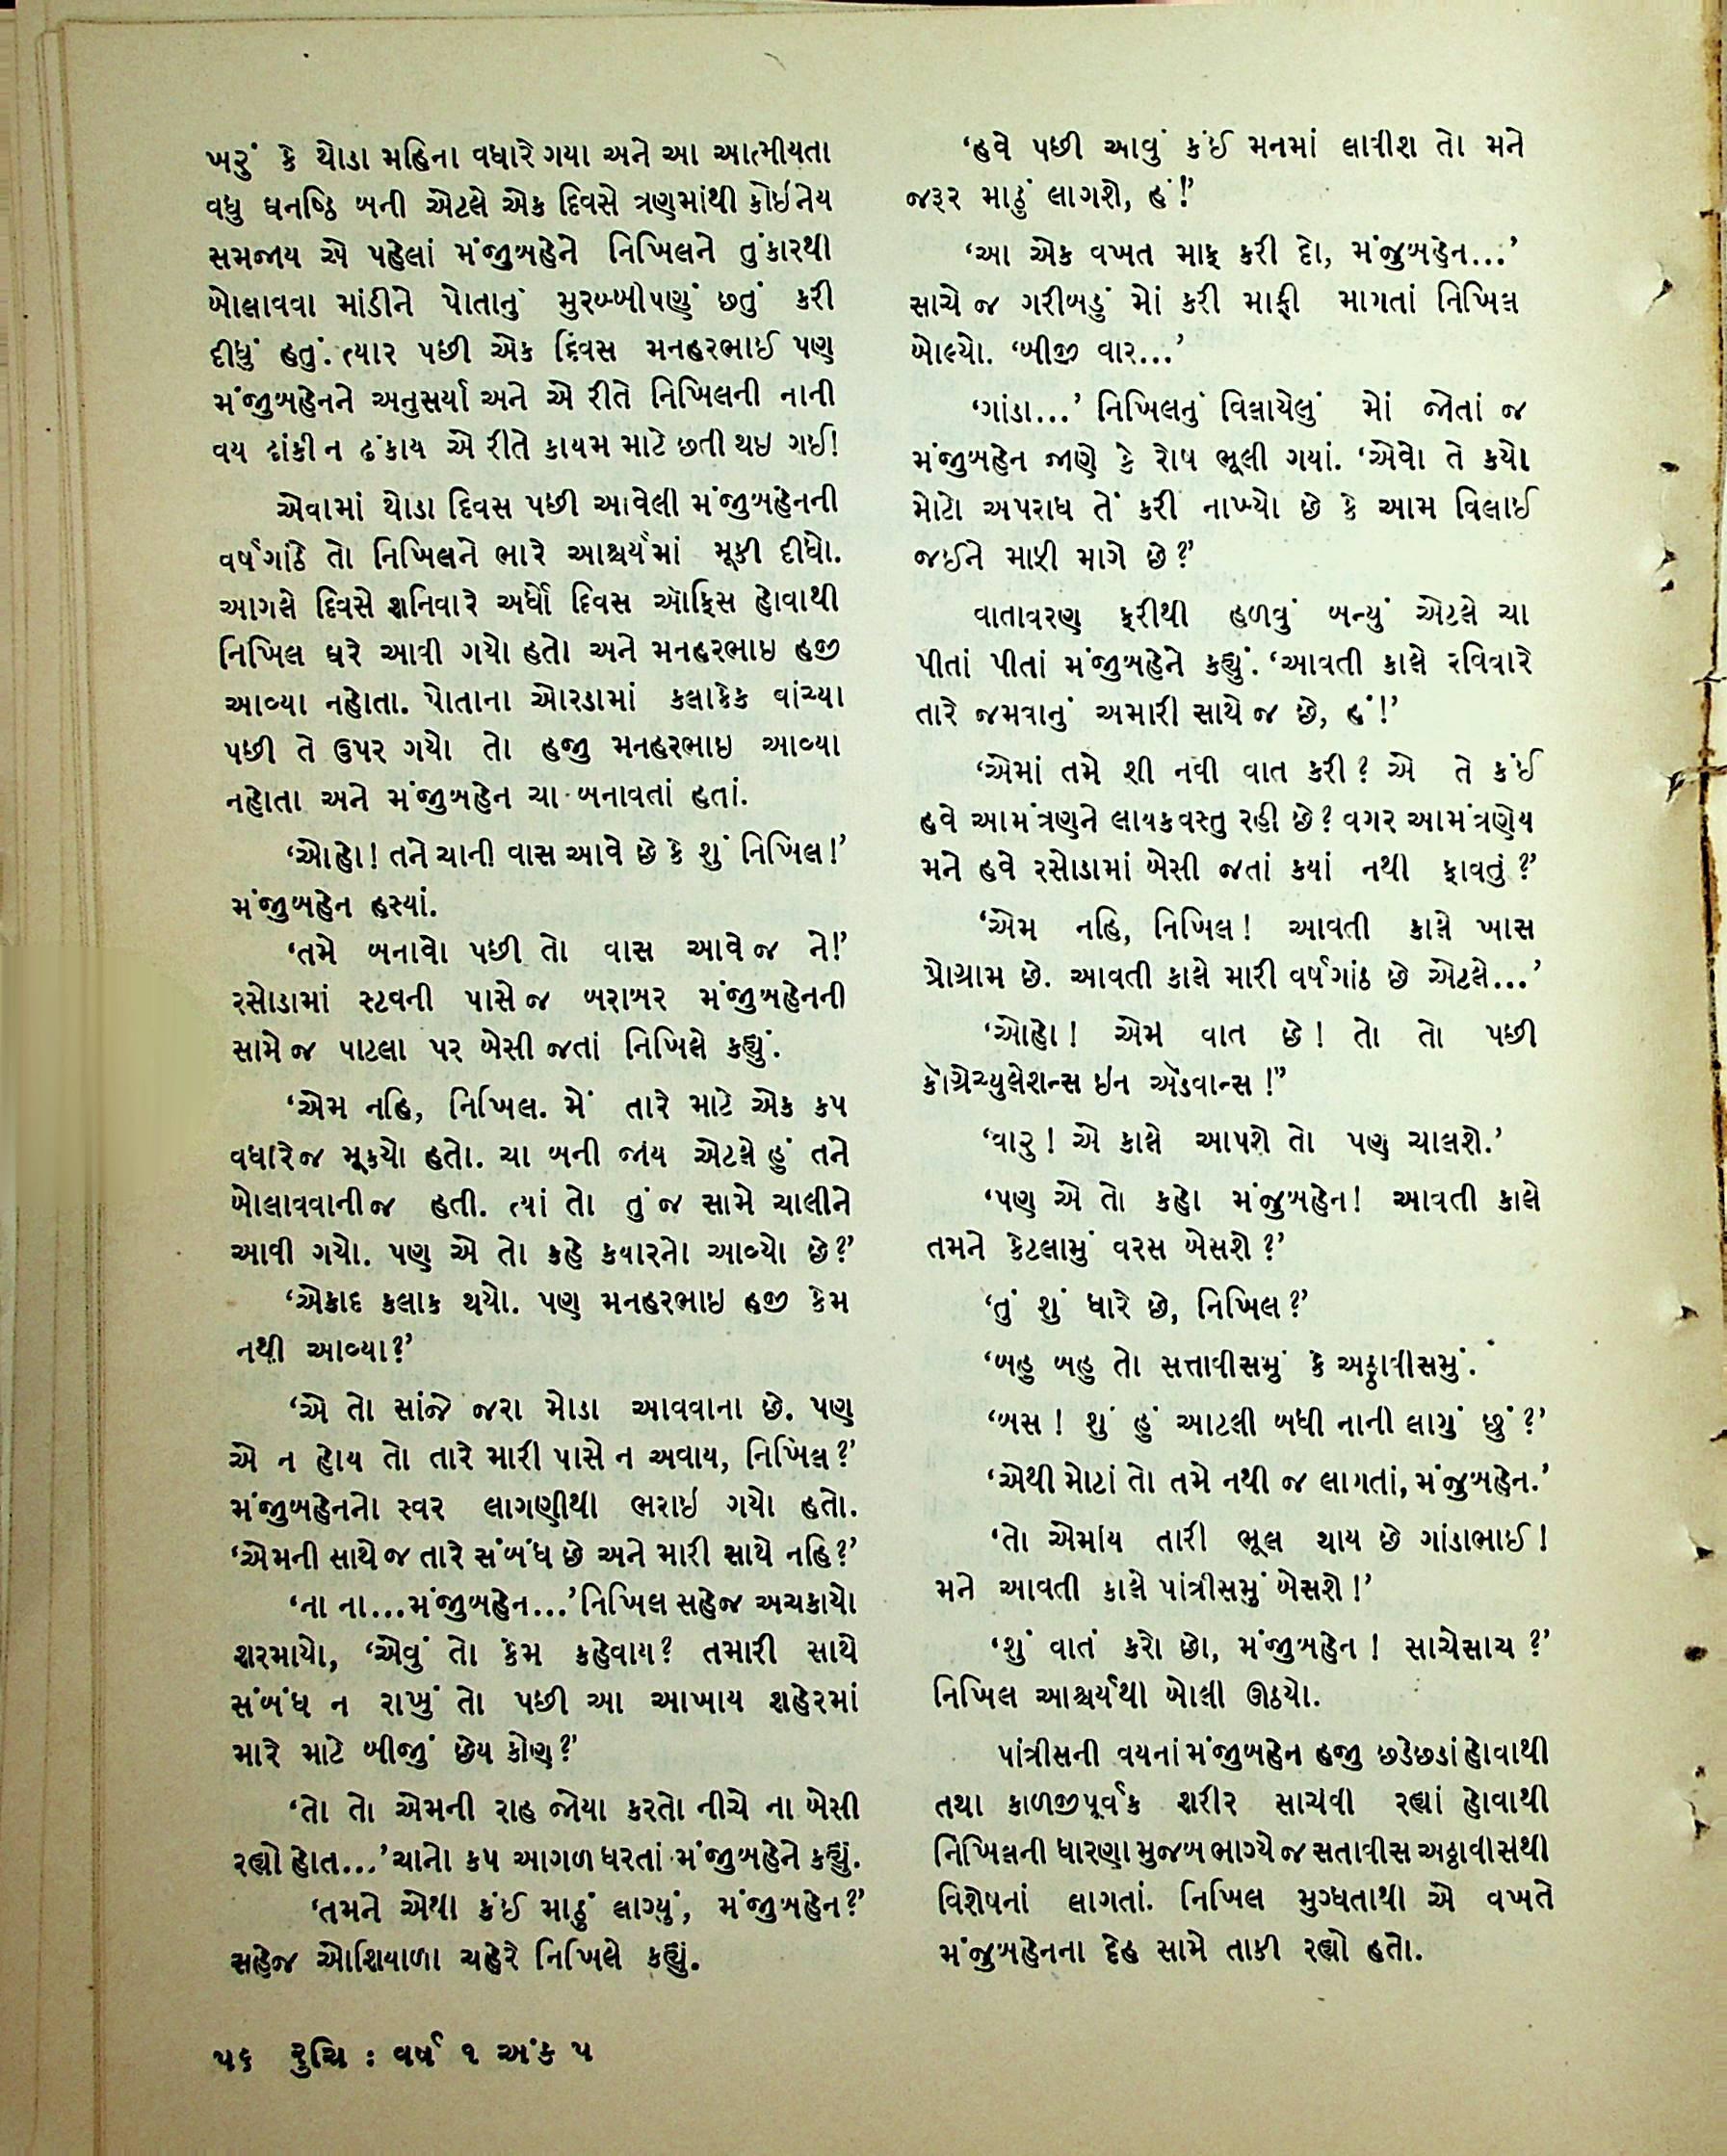 ખરું કે થોડા મહિના વધારે ગયા અને આ આત્મીયતા
વધુ ઘનષ્ઠિ બની એટલે એક દિવસે ત્રણમાંથી કોઈનેય
સમજાય એ પહેલાં મંજુબહેને નિખિલને તુંકારથી
બોલાવવા માંડીને પોતાનું મુરબ્બીપણું છતું કરી
દીધું હતું. ત્યાર પછી એક દિવસ મનહરભાઈ પણ
મંજુબહેનને અનુસર્યા અને એ રીતે નિખિલની નાની
વય ઢાંકી ન ઢંકાય એ રીતે કાયમ માટે છતી થઇ ગઈ!
એવામાં થોડા દિવસ પછી આવેલી મંજુબહેનની
વર્ષગાંઠે તો નિખિલને ભારે આશ્ચર્યમાં મૂકી દીધો.
આગલે દિવસે શનિવારે અર્ધો દિવસ ઑફિસ હોવાથી
નિખિલ ઘરે આવી ગયો હતો અને મનહરભાઇ હજી
આવ્યા નહોતા. પોતાના ઓરડામાં કલાકેક વાંચ્યા
પછી તે ઉપર ગયો તો હજુ મનહરભાઇ આવ્યા
નહોતા અને મંજુબહેન ચા બનાવતાં હતાં.
‘ઓહો! તને ચાની વાસ આવે છે કે શું નિખિલ!’
મંજુબહેન હસ્યાં.
‘તમે બનાવો પછી તો વાસ આવે જ ને!’
રસોડામાં સ્ટવની પાસે જ બરાબર મંજુબહેનની
સામે જ પાટલા પર બેસી જતાં નિખિલે કહ્યું.
‘એમ નહિ, નિખિલ. મેં તારે માટે એક કપ
વધારેજ મૂકયો હતો. ચા બની જાય એટલે હું તને
બોલાવવાનીજ હતી. ત્યાં તો તું જ સામે ચાલીને
આવી ગયો. પણ એ તો કહે કયારનો આવ્યો છે?’
‘એકાદ કલાક થયો. પણ મનહરભાઇ હજી કેમ
નથી આવ્યા?’
‘એ તો સાંજે જરા મોડા આવવાના છે. પણ
એ ન હોય તો તારે મારી પાસે ન અવાય, નિખિલ?’
મંજુબહેનનો સ્વર લાગણીથી ભરાઇ ગયો હતો.
‘એમની સાથે જ તારે સંબંધ છે અને મારી સાથે નહિ?’
‘ના ના...મંજુબહેન...’ નિખિલ સહેજ અચકાયો
શરમાયો, ‘એવું તો કેમ કહેવાય? તમારી સાથે
સંબંધ ન રાખું તો પછી આ આખાય શહેરમાં
મારે માટે બીજું છેય કોણ?’
‘તો તો એમની રાહ જોયા કરતો નીચે ના બેસી
રહ્યો હોત...’ ચાનો કપ આગળ ધરતાં મંજુબહેને કહ્યું.
‘તમને એથી કંઈ માઠું લાગ્યું, મંજુબહેન?’
સહેજ ઓશિયાળા ચહેરે નિખિલે કહ્યું.
‘હવે પછી આવું કંઈ મનમાં લાવીશ તો મને
જરૂર માઠું લાગશે, હં!’
‘આ એક વખત માફ કરી દો, મંજુબહેન...’
સાચે જ ગરીબડું મોં કરી માફી માગતાં નિખિલ
બોલ્યો. ‘બીજી વાર...’
‘ગાંડા...’ નિખિલનું વિલાયેલું મોં જોતાં જ
મંજુબહેન જાણે કે રોષ ભૂલી ગયાં. ‘એવો તે કયો
મોટો અપરાધ તેં કરી નાખ્યો છે કે આમ વિલાઈ
જઈને માફી માગે છે?’
વાતાવરણ ફરીથી હળવું બન્યું એટલે ચા
પીતાં પીતાં મંજુબહેને કહ્યું. ‘આવતી કાલે રવિવારે
તારે જમવાનું અમારી સાથે જ છે, હં!’
‘એમાં તમે શી નવી વાત કરી? એ તે કંઈ
હવે આમંત્રણને લાયક વસ્તુ રહી છે? વગર આમંત્રણેય
મને હવે રસોડામાં બેસી જતાં કયાં નથી ફાવતું?’
‘એમ નહિ, નિખિલ! આવતી કાલે ખાસ
પ્રોગ્રામ છે. આવતી કાલે મારી વર્ષગાંઠ છે એટલે...’
‘ઓહો! એમ વાત છે! તો તો પછી
કોંગ્રેચ્યુલેશન્સ ઇન એડવાન્સ!”
‘વારુ! એ કાલે આપશે તો પણ ચાલશે.’
‘પણ એ તો કહો મંજુબહેન! આવતી કાલે
તમને કેટલામું વરસ બેસશે?’
‘તું શું ધારે છે, નિખિલ?’
‘બહુ બહુ તો સત્તાવીસમું કે અઠ્ઠાવીસમું.
‘બસ! શું હું આટલી બધી નાની લાગું છું?’
‘એથી મોટાં તો તમે નથી જ લાગતાં, મંજુબહેન.’
‘તો એમાંય તારી ભૂલ થાય છે ગાંડાભાઈ!
મને આવતી કાલે પાંત્રીસમું બેસશે!’
‘શું વાત કરો છો, મંજુબહેન! સાચેસાચ?’
નિખિલ આશ્ચર્યથી બોલી ઊઠયો.
પાંત્રીસની વયનાં મંજુબહેન હજુ છડેછડાં હોવાથી
તથા કાળજીપૂર્વક શરીર સાચવી રહ્યાં હોવાથી
નિખિલની ધારણા મુજબ ભાગ્યે જ સતાવીસ અઠ્ઠાવીસથી
વિશેષનાં લાગતાં. નિખિલ મુગ્ધતાથી એ વખતે
મંજુબહેનના દેહ સામે તાકી રહ્યો હતો.
૫૬ રુચિ : વર્ષ ૧ અંક ૫